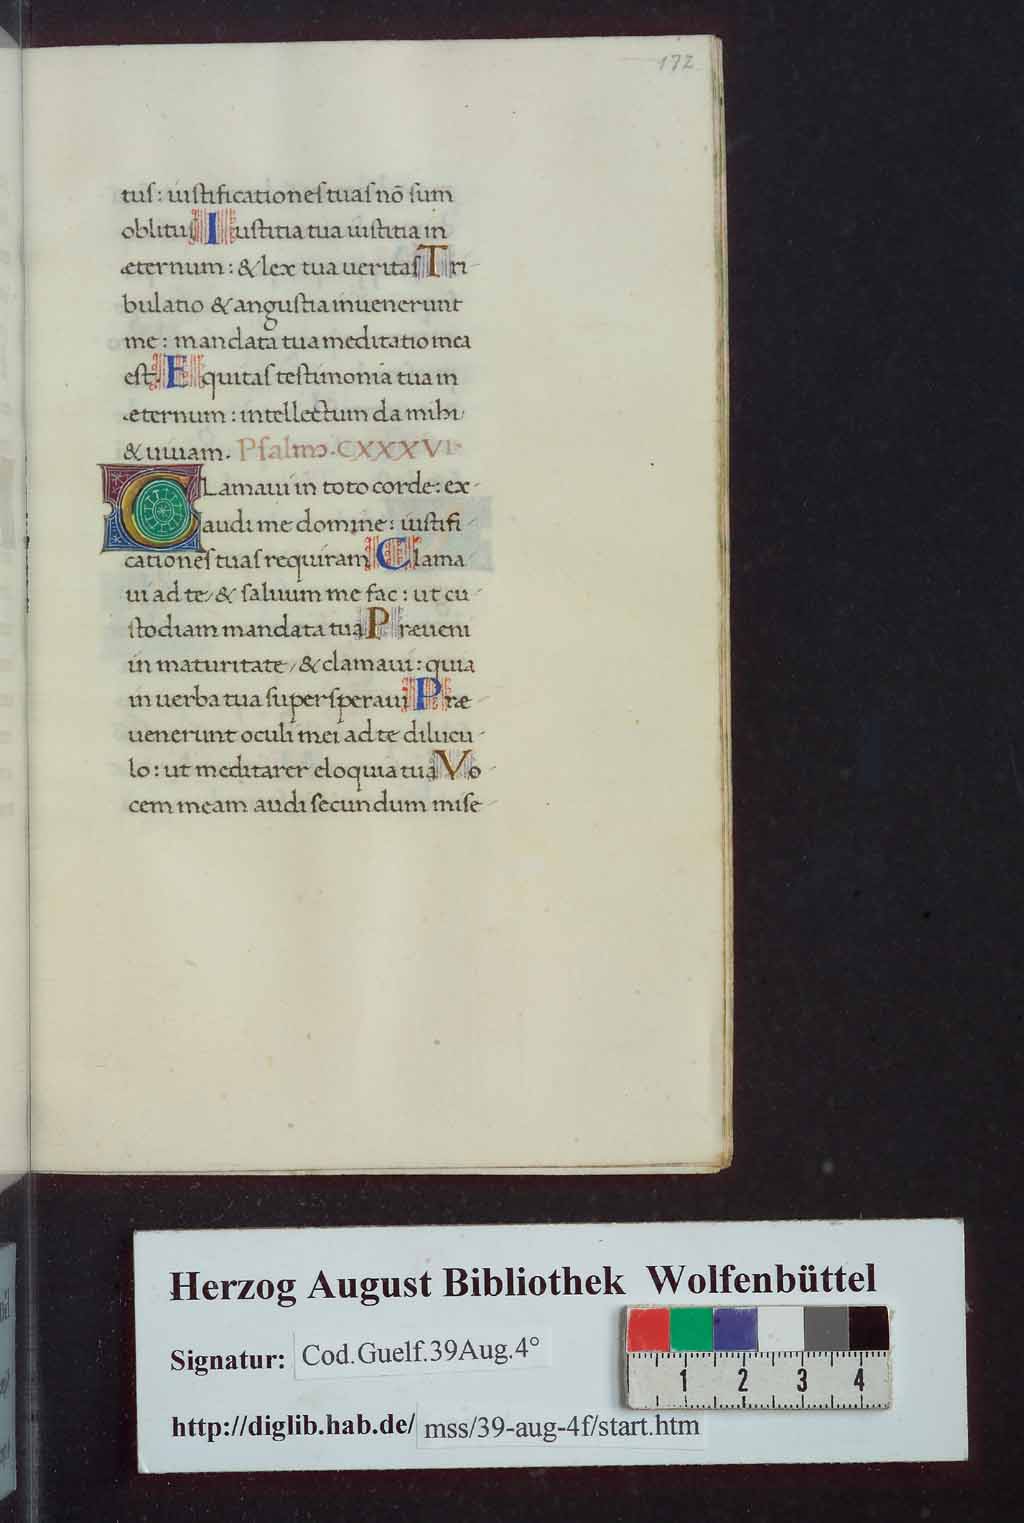 172
tuſ: iuſtificationeſ tuaſ nō ſum
oblituſ Iuſtitia tua iuſtitia in
æternum: & lex tua ueritaſ Tri-
bulatio & anguſtia inuenerunt
me: mandata tua meditatio mea
eſt. Equitaſ teſtimonia tua in
æternum: intellectum da mihi,
& uiuam. Pſalmꝰ. CXXXVI.
CLamaui in toto corde: ex-
audi me domine: iuſtifi-
cationeſ tuaſ requiram Clama
ui ad te, & ſaluum me fac: ut cu-
ſtodiam mandata tua Præueni
in maturitate, & clamaui: quia
in uerba tua ſuperſperaui Præ-
uenerunt oculi mei ad te dilucu-
lo: ut meditarer eloquia tua Vo-
cem meam audi ſecundum miſe-
Herzog August Bibliothek Wolfenbüttel
Signatur: Cod.Guelf.39Aug.4°
1 2 3 4
http://diglib.hab.de/ mss/39-aug-4f/start.htm